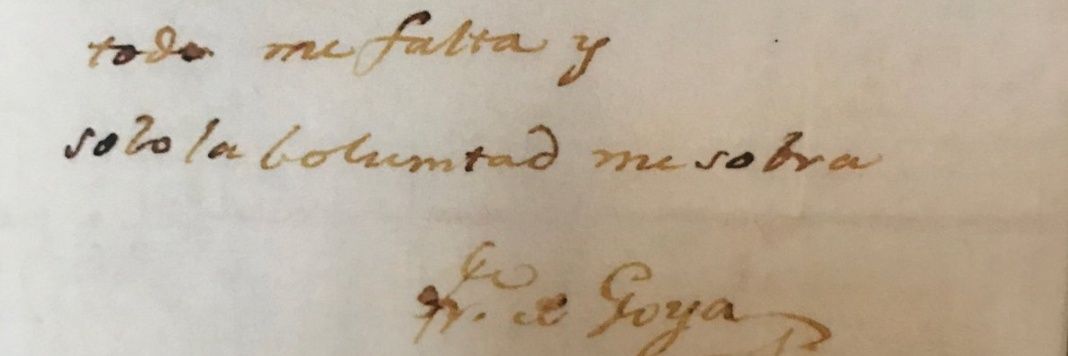 todo me falta y
solo la bolumtad me sobra
Fr.co de Goya